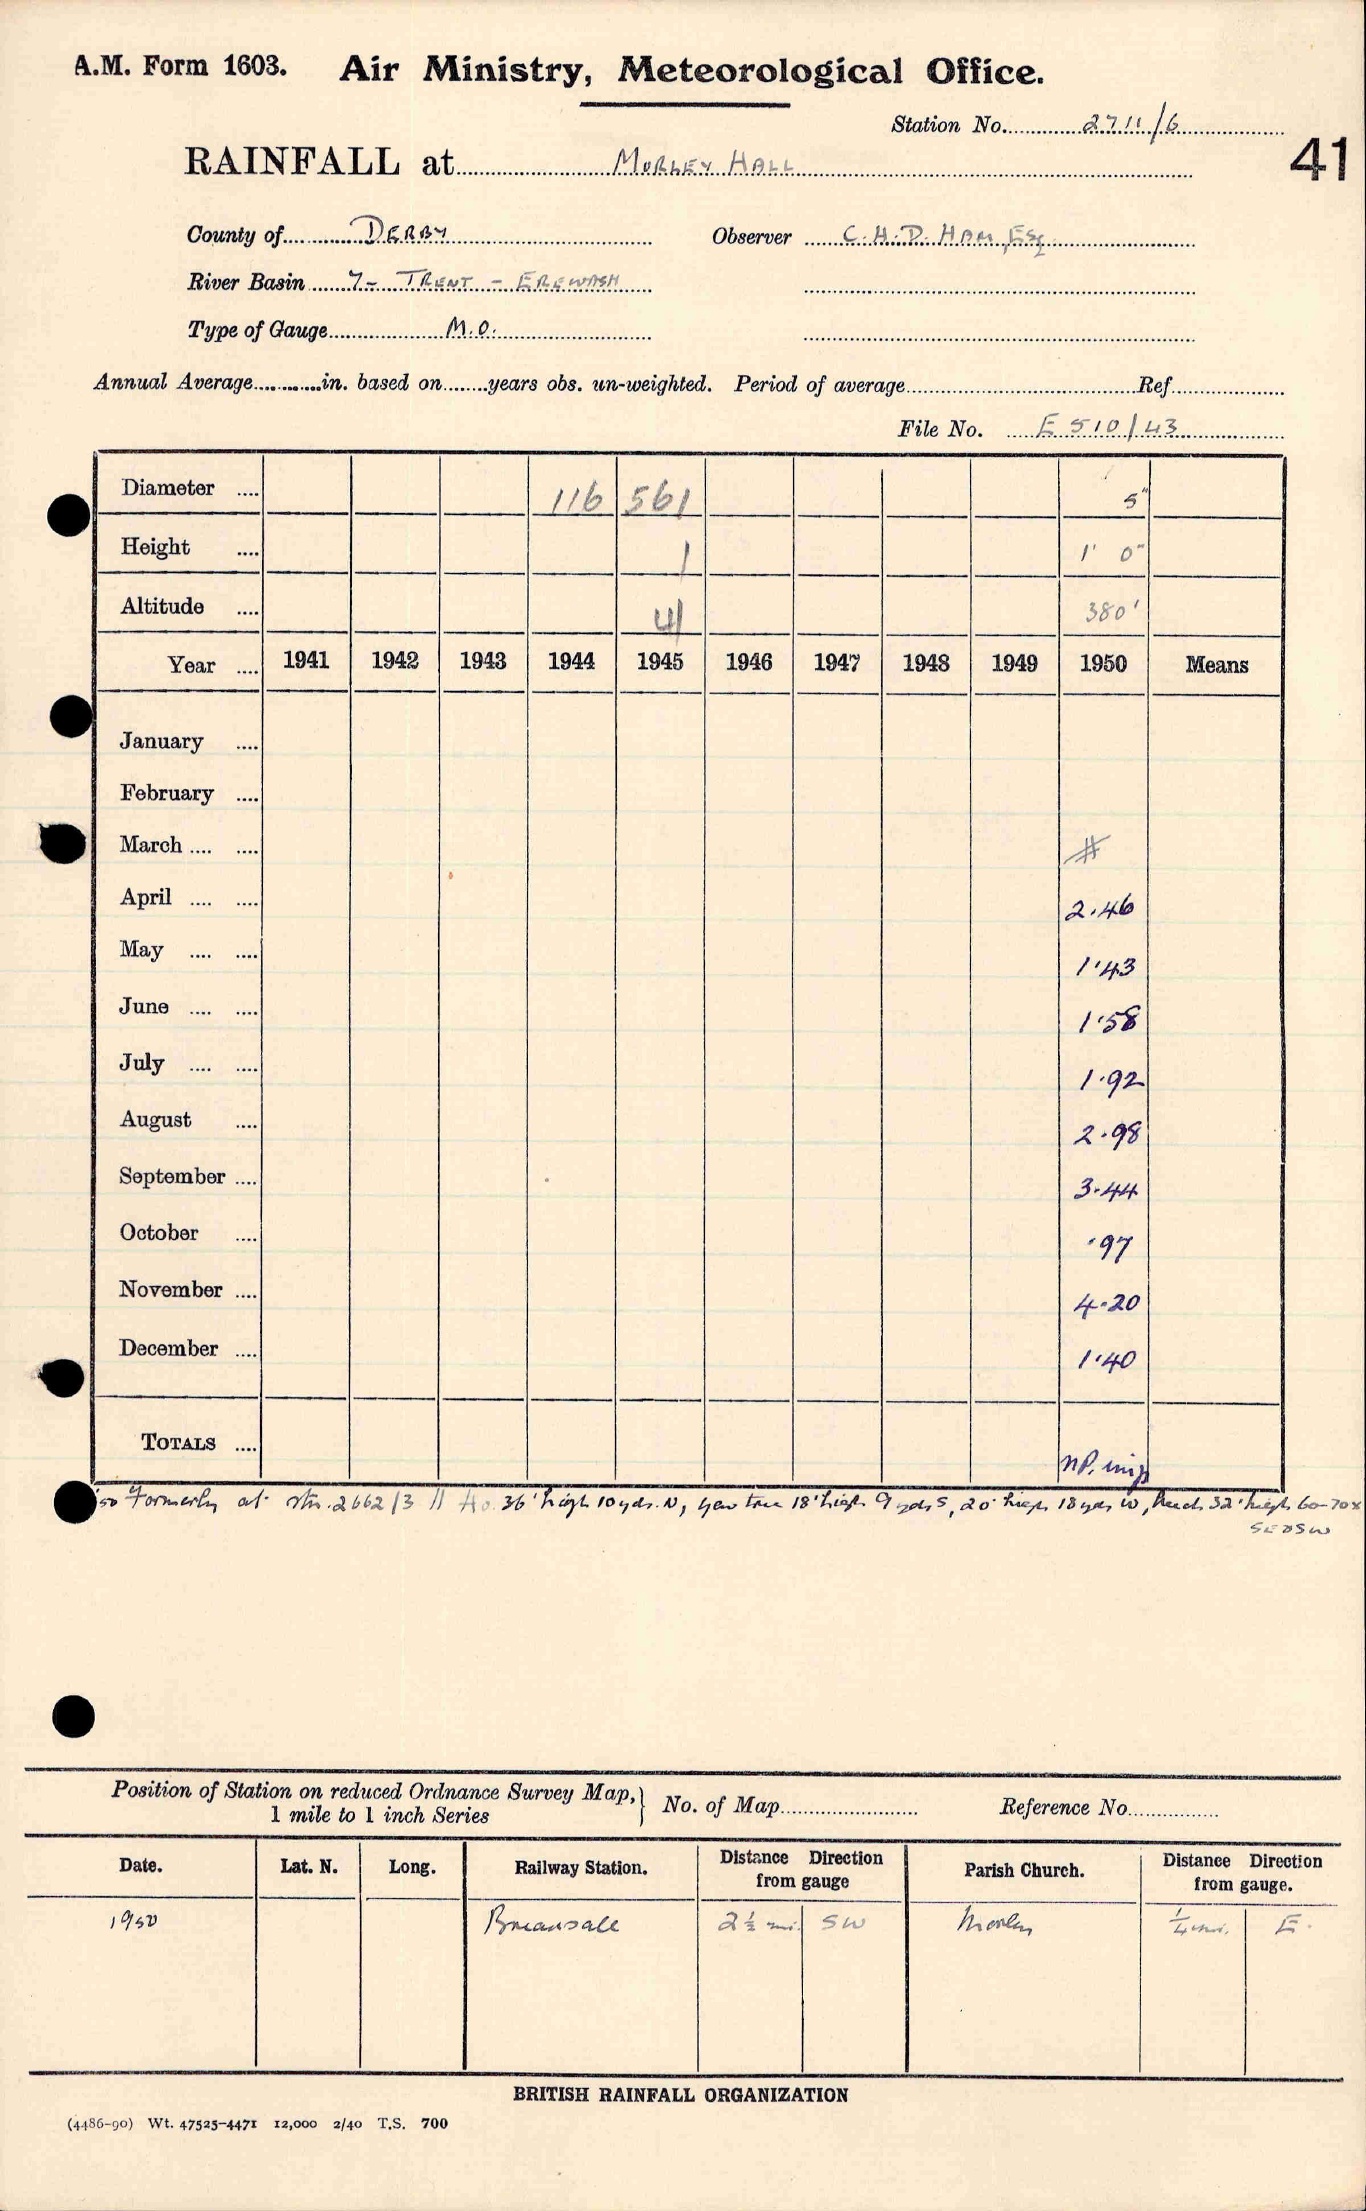 A.M. Form 1603. Air Ministry, Meteorological Office.
Station No. 2711/6
41
RAINFALL at MORLEY HALL
County of DERBY Observer C.H.D. HAM, Esq.
River Basin 7- TRENT - EREWASH
Type of Gauge M.O.
Annual Average in. based on years obs. un-weighted. Period of average Ref.
File No. E 510/43
Diameter .... 116 561 5"
Height .... 1 1' 0"
Altitude .... 41 380'
Year .... 1941 1942 1943 1944 1945 1946 1947 1948 1949 1950 Means
January ....
February ....
March .... .... #
April .... .... 2.46
May .... .... 1.43
June .... .... 1.58
July .... .... 1.92
August .... 2.98
September .... 3.44
October .... .97
November .... 4.20
December .... 1.40
TOTALS ....
'50 Formerly at stn. 2662/3 // Ho. 36' high 10yds. N, yew tree 18' high 9yds S, 20' high 18yds W, 32' high 60-70x
Position of Station on reduced Ordnance Survey Map,
1 mile to 1 inch Series } No. of Map Reference No.
Date. Lat. N. Long. Railway Station. Distance Direction from gauge Parish Church. Distance Direction from gauge.
1950 Breadsall 2½ mi. SW Morley ¼ mi. E.
BRITISH RAINFALL ORGANIZATION
(4486-90) Wt. 47525-4471 12,000 2/40 T.S. 700